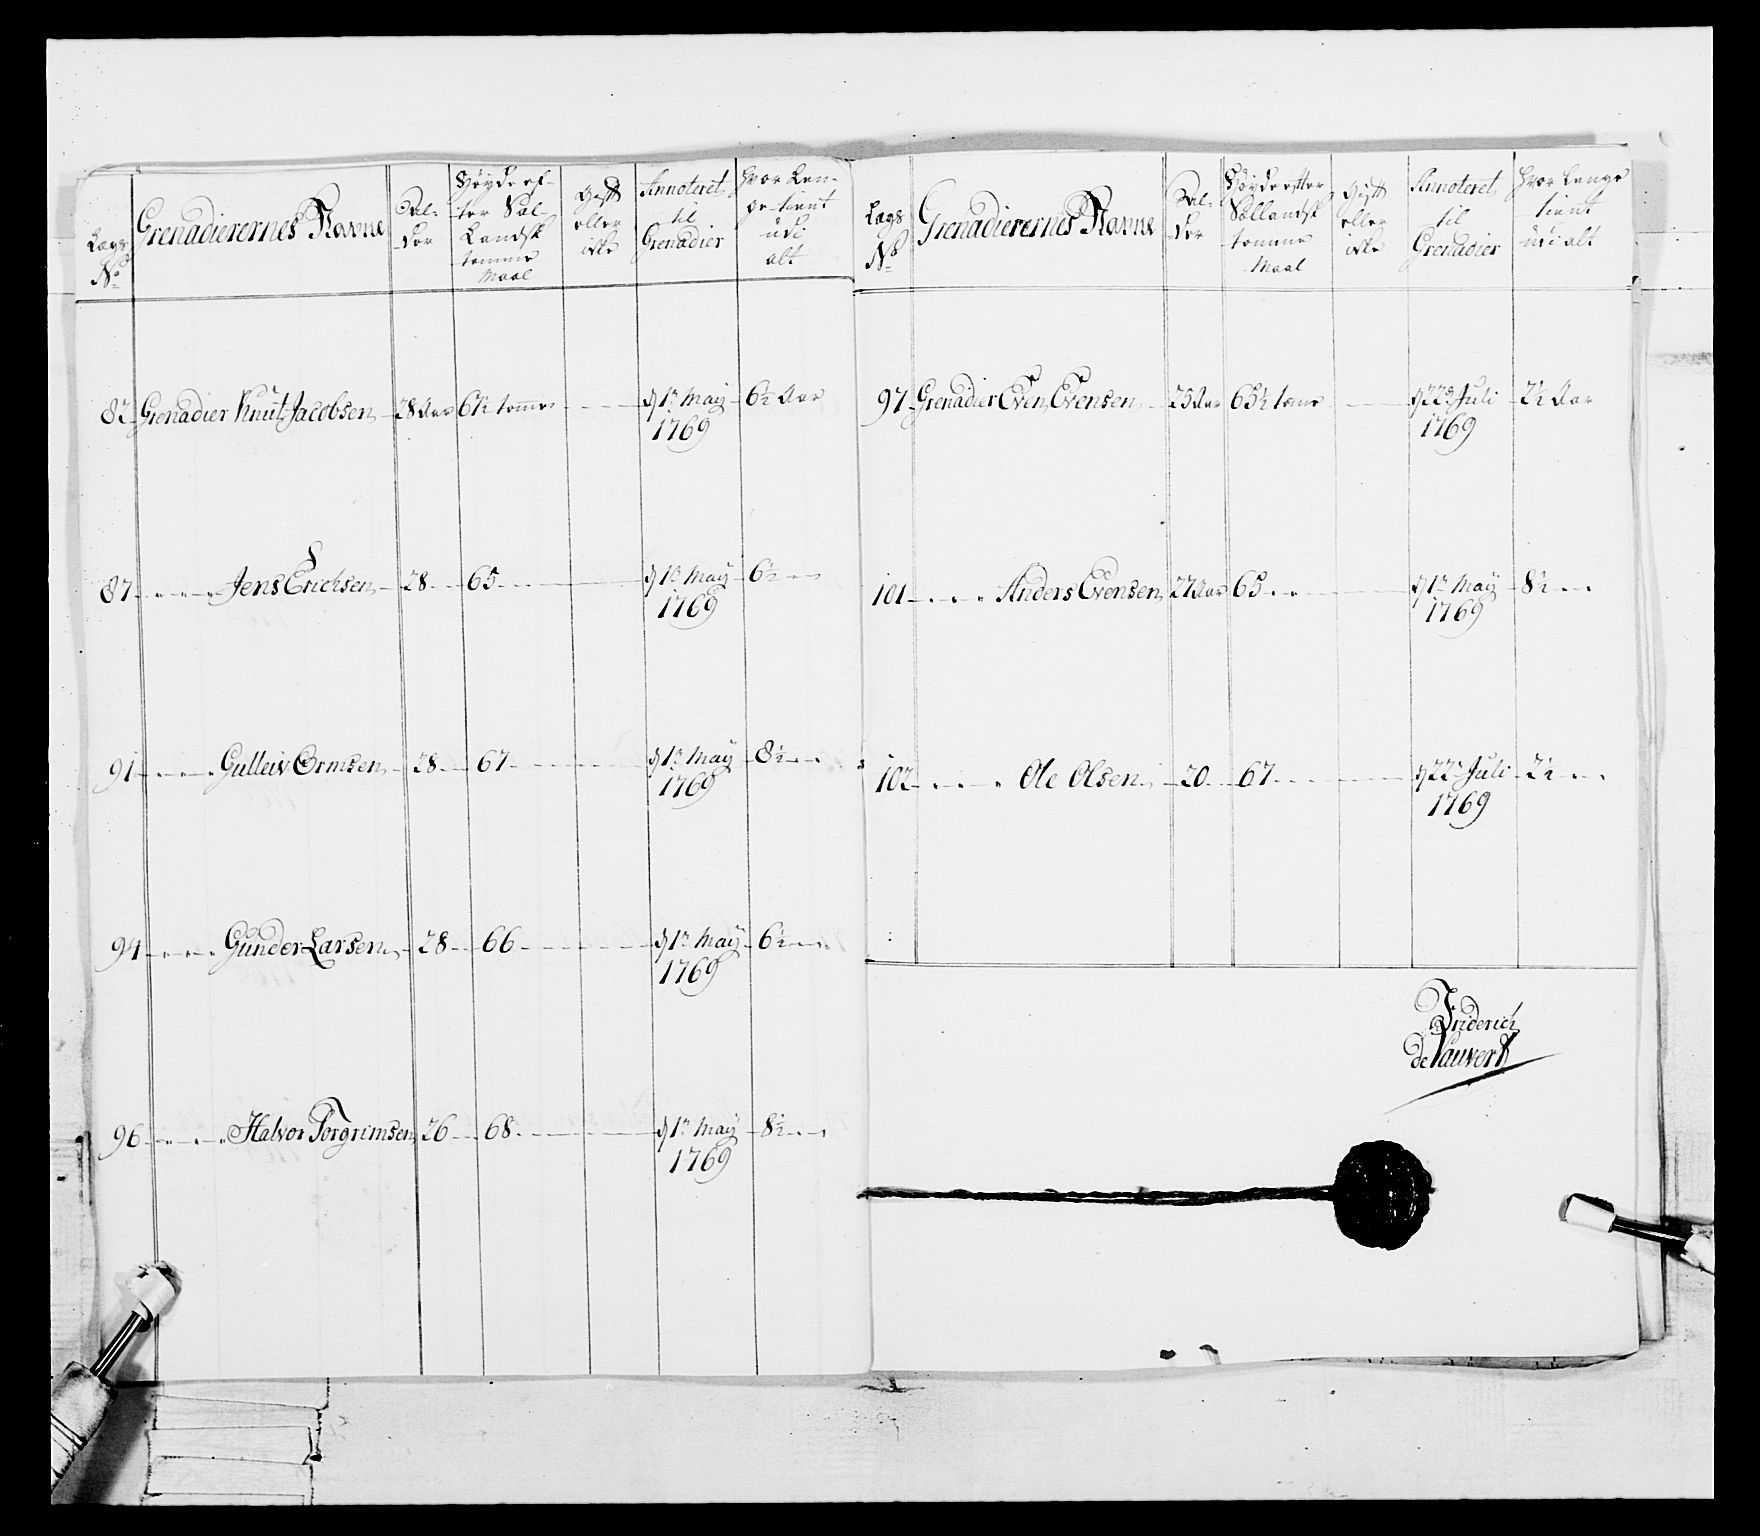 Lægs No
Grenadierernes Navne
Al-
der
Høyde ef-
ter Sæl-
Landsk
tomme
Maal
Gift
eller
ikke
Annoteret
til
Grenadier
Hvor Læn-
ge tient
udi
alt
82 Grenadier Knut Jacobsen 28 Aar 61½ tomme d 1te May 6½ Aar
1769
87 Jens Erichsen 28 65 d 1te May 6½
1769
91 Gulleiv Ormsen 28 67 d 1te May 8½
1769
94 Gunder Larsen 28 66 d 1te May 6½
1769
96 Halvor Torgrimsen 26 68 d 1te May 8½
1769
Lægs
No
Grenadierernes Navne
Al-
der
Høyde efter
Sællandsk
tomme
Maal
Gift
eller
ikke
Annoteret
til
Grenadier
Hvor Længe
tient
udi alt
97 Grenadier Even Evensen 25 Aar 65½ tome d 22de Juli 2½ Aar
1769
101 Anders Evensen 27 Aar 65 d 1te May 8½
1769
102 Ole Olsen 20 67 d 22de Juli 2½
1769
Friderich
de Vauvert